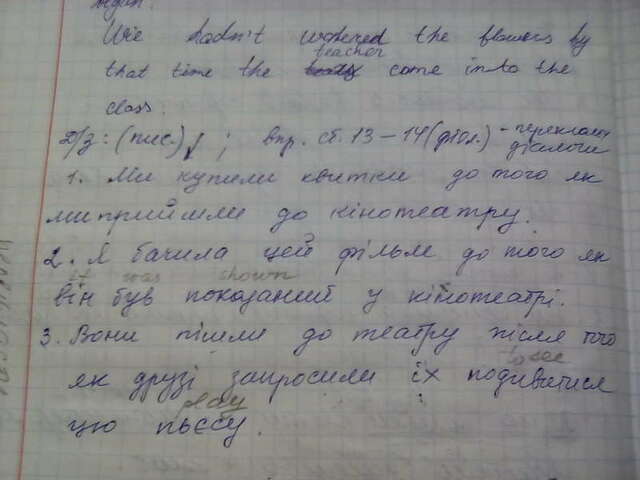 again.
We hadn't watered the flowers by
teacher
that time the come into the
class.
Д/з: (пис.)↓ ; впр. ст. 13 – 14 (діал.) - переклали
діалоги
1. Ми купили квитки до того як
ми прийшли до кінотеатру.
2. Я бачила цей фільм до того як
it was shown
він був показаний у кінотеатрі.
3. Вони пішли до театру після того
to see
як друзі запросили їх подивитися
play
цю пьєсу.